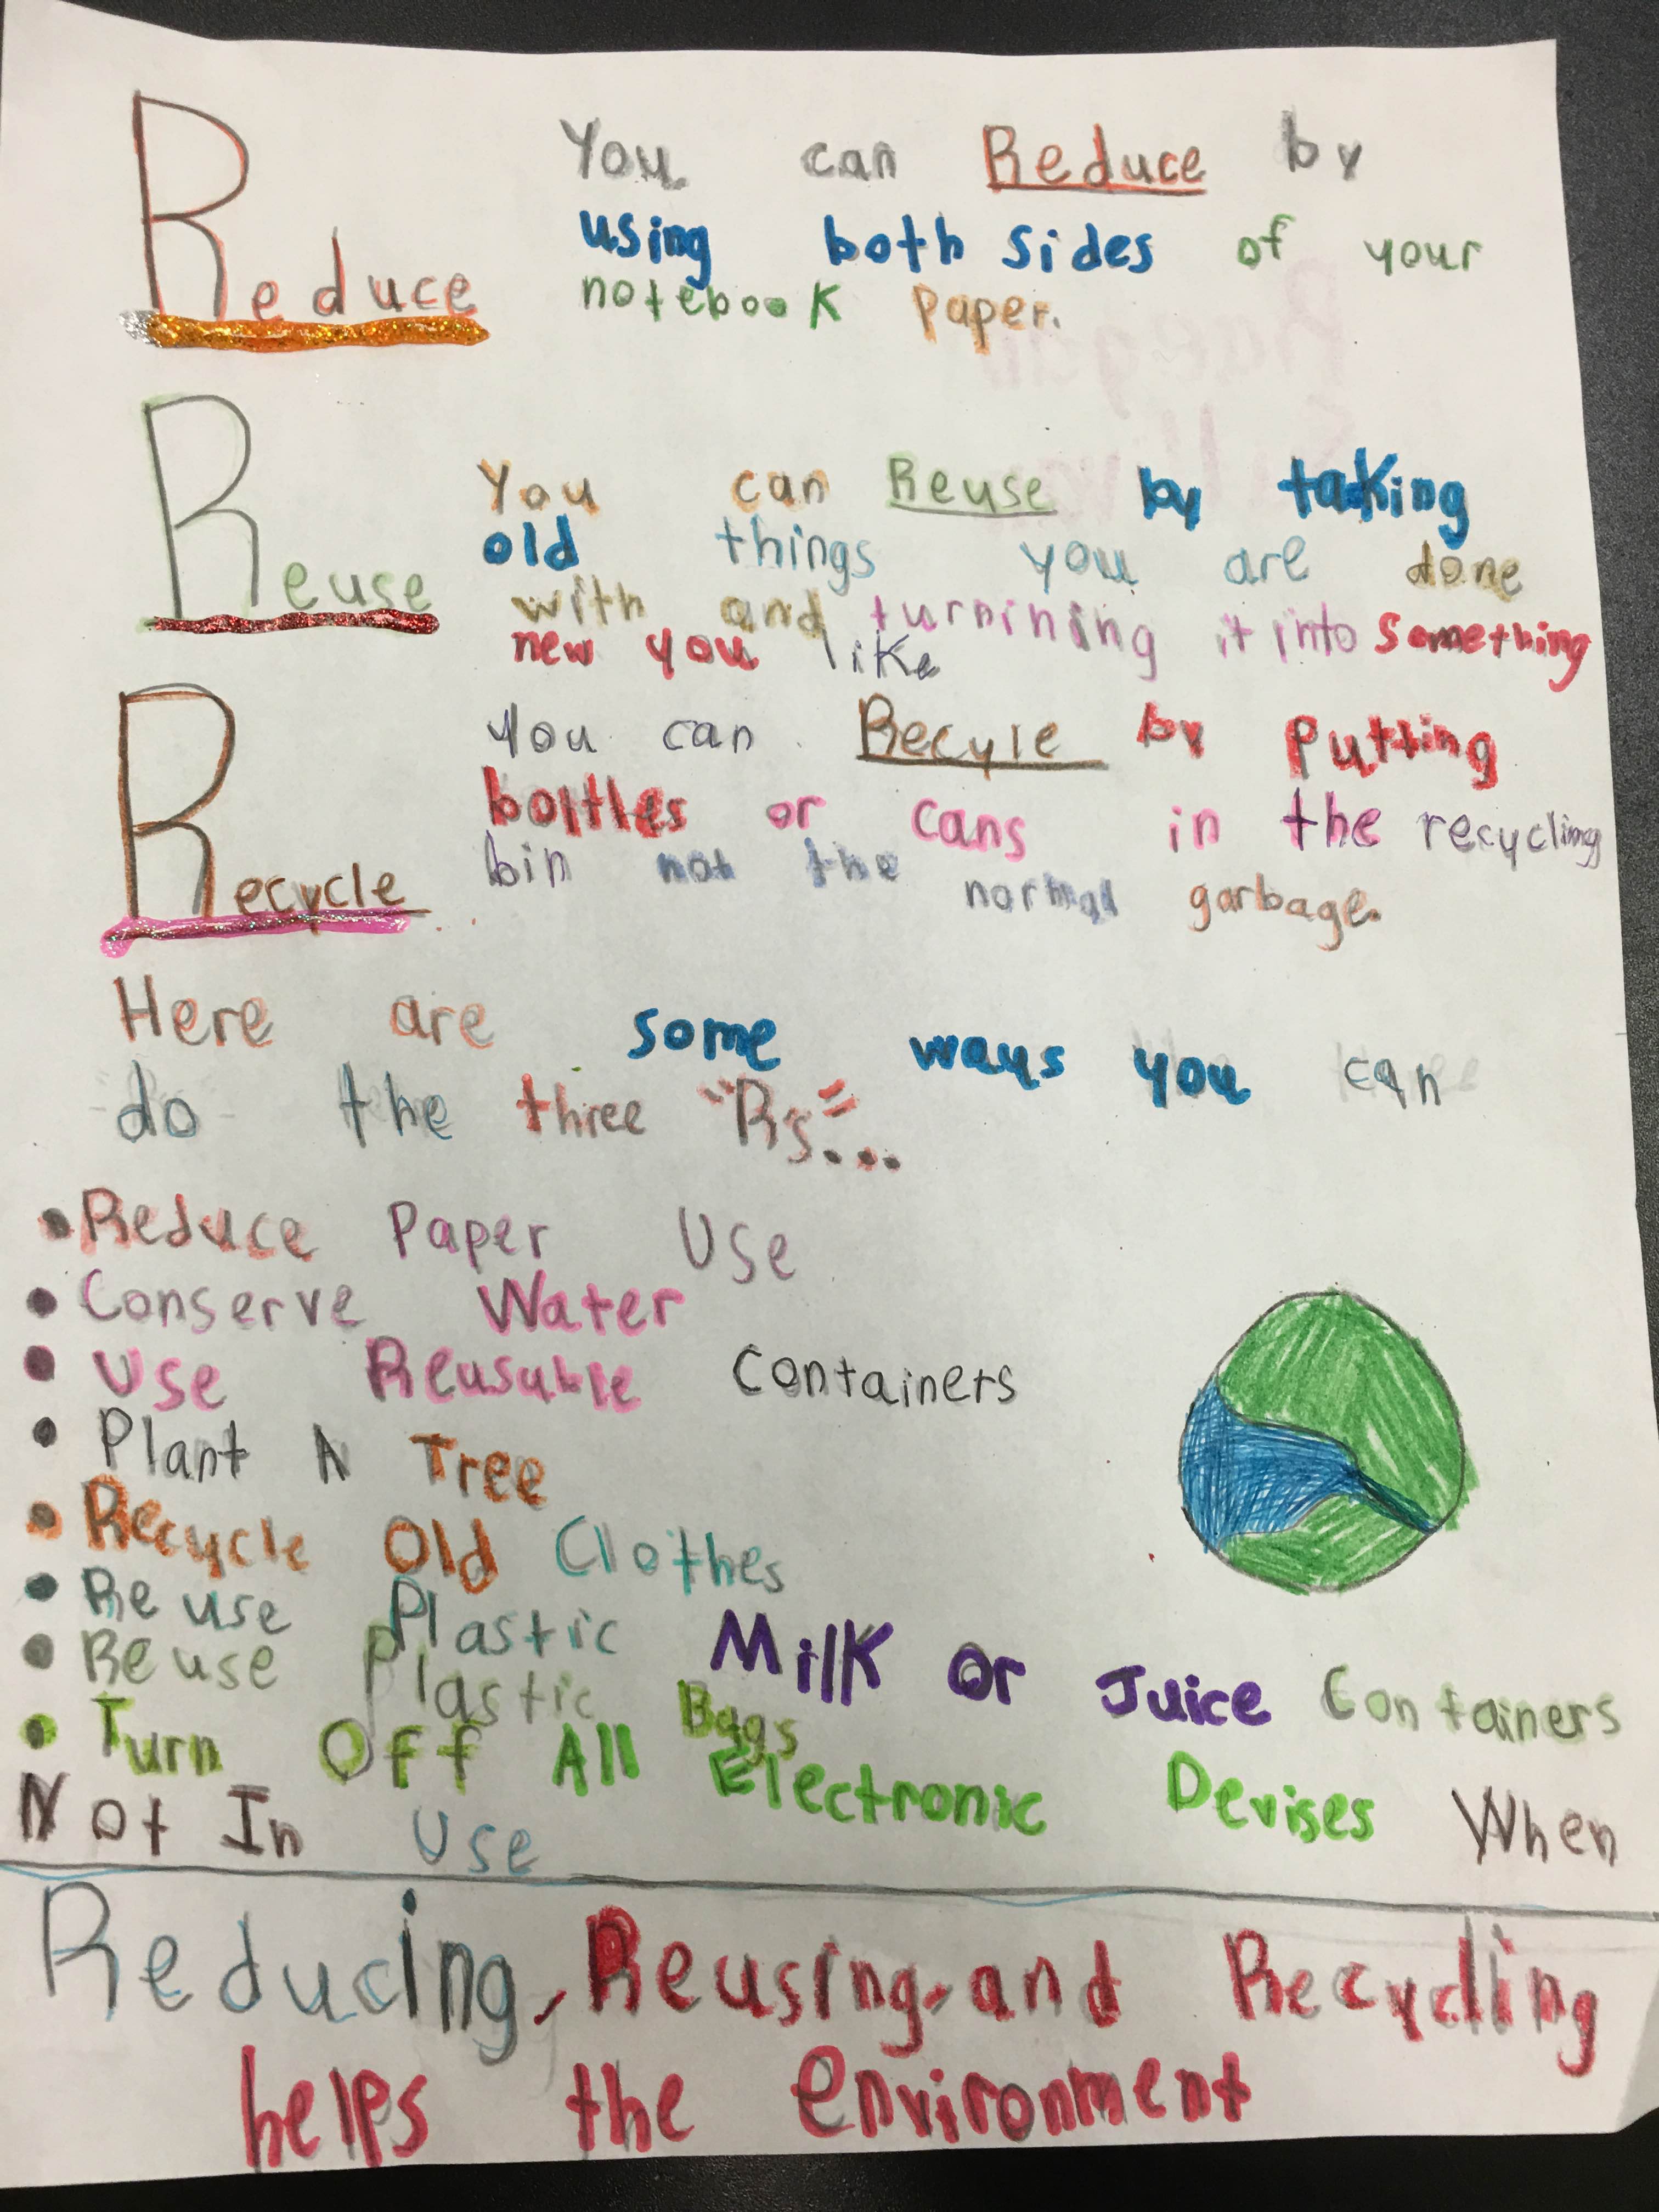 Reduce
You can Reduce by
using both sides of your
notebook paper.
Reuse
You can Reuse by taking
old things you are done
with and turnining it into something
new you like
Recycle
You can Recyle by putting
bolttles or cans in the recycling
bin not the normal garbage.
Here are some ways you can
do the three "Rs"...
• Reduce Paper Use
• Conserve Water
• Use Reusable Containers
• Plant A Tree
• Recycle Old Clothes
• Reuse Plastic Milk Or Juice Containers
• Reuse Plastic Bags
• Turn Off All Electronic Devises When
Not In Use
Reducing, Reusing, and Recycling
helps the environment